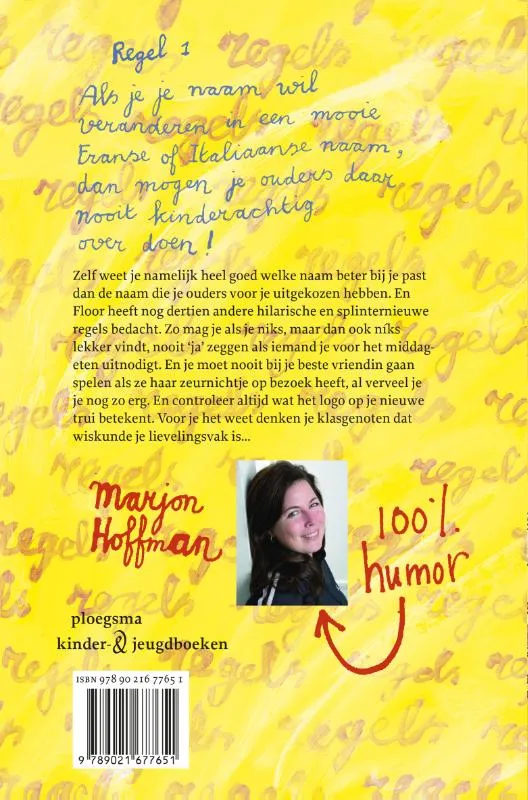 Regel 1
Als je je naam wil
veranderen in een mooie
Franse of Italiaanse naam,
dan mogen je ouders daar
nooit kinderachtig
over doen!
Zelf weet je namelijk heel goed welke naam beter bij je past
dan de naam die je ouders voor je uitgekozen hebben. En
Floor heeft nog dertien andere hilarische en splinternieuwe
regels bedacht. Zo mag je als je niks, maar dan ook níks
lekker vindt, nooit ‘ja’ zeggen als iemand je voor het middag-
eten uitnodigt. En je moet nooit bij je beste vriendin gaan
spelen als ze haar zeurnichtje op bezoek heeft, al verveel je
je nog zo erg. En controleer altijd wat het logo op je nieuwe
trui betekent. Voor je het weet denken je klasgenoten dat
wiskunde je lievelingsvak is...
Marjon
Hoffman
100%
humor
ploegsma
kinder-& jeugdboeken
ISBN 978 90 216 7765 1
9 789021 677651